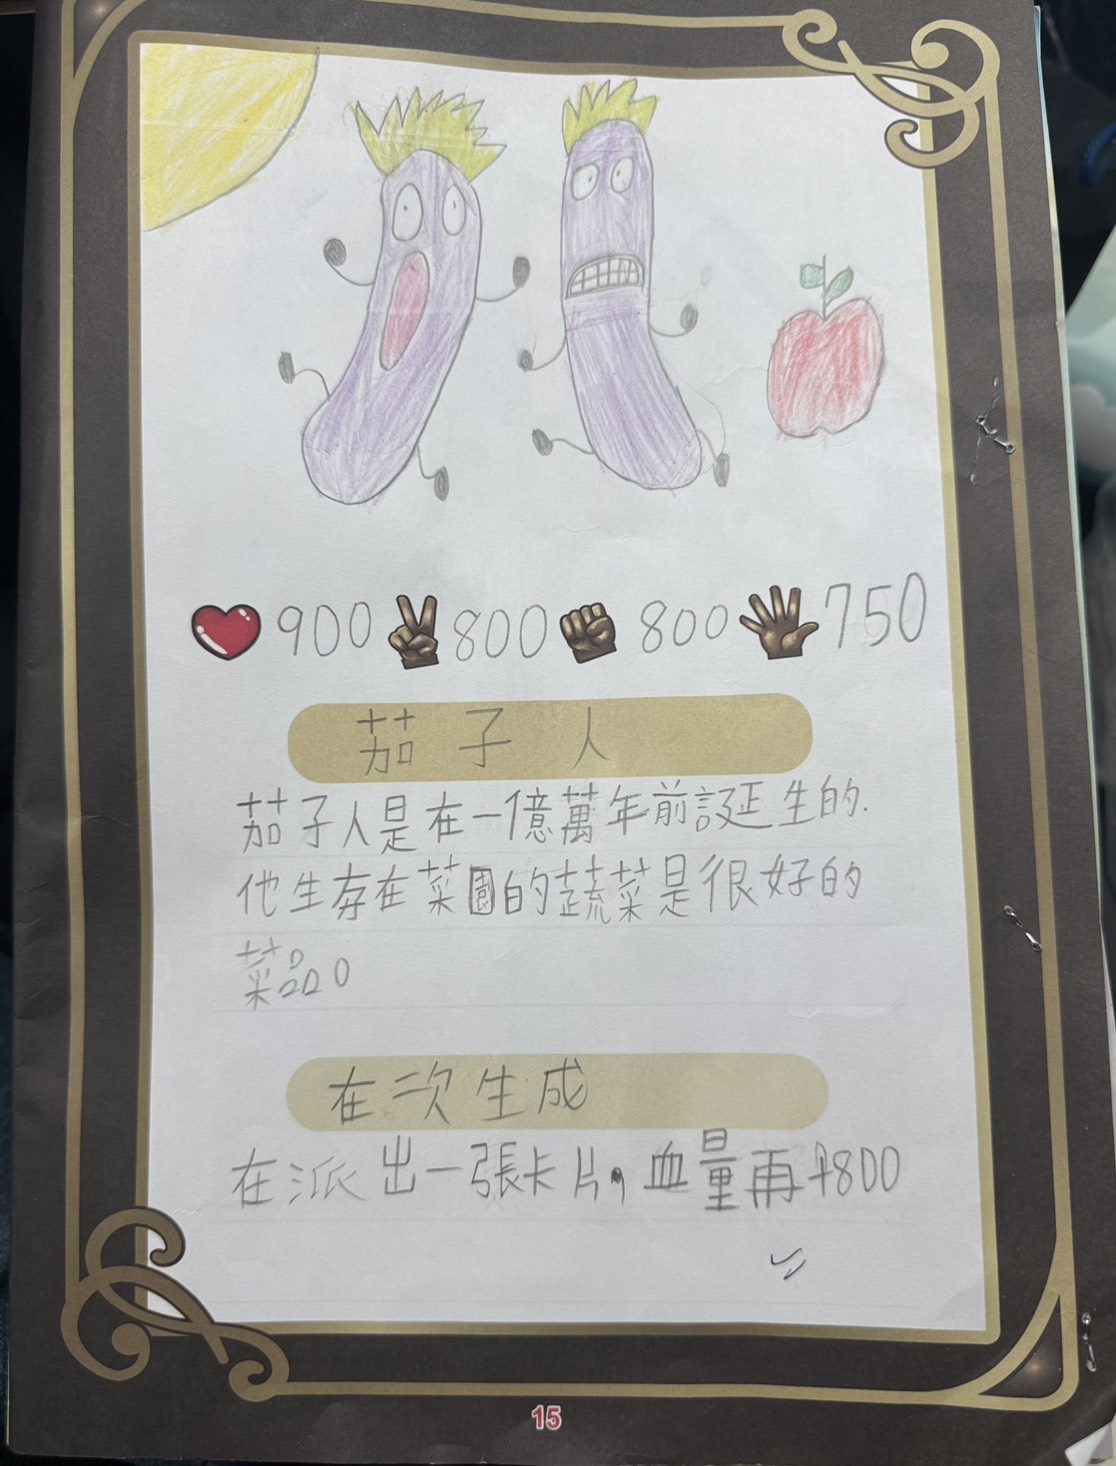 900 800 800 750
茄子人
茄子人是在一億萬年前誕生的.
他生存在菜園的蔬菜是很好的
菜品。
在次生成
在派出一張卡片,血量再+800
15